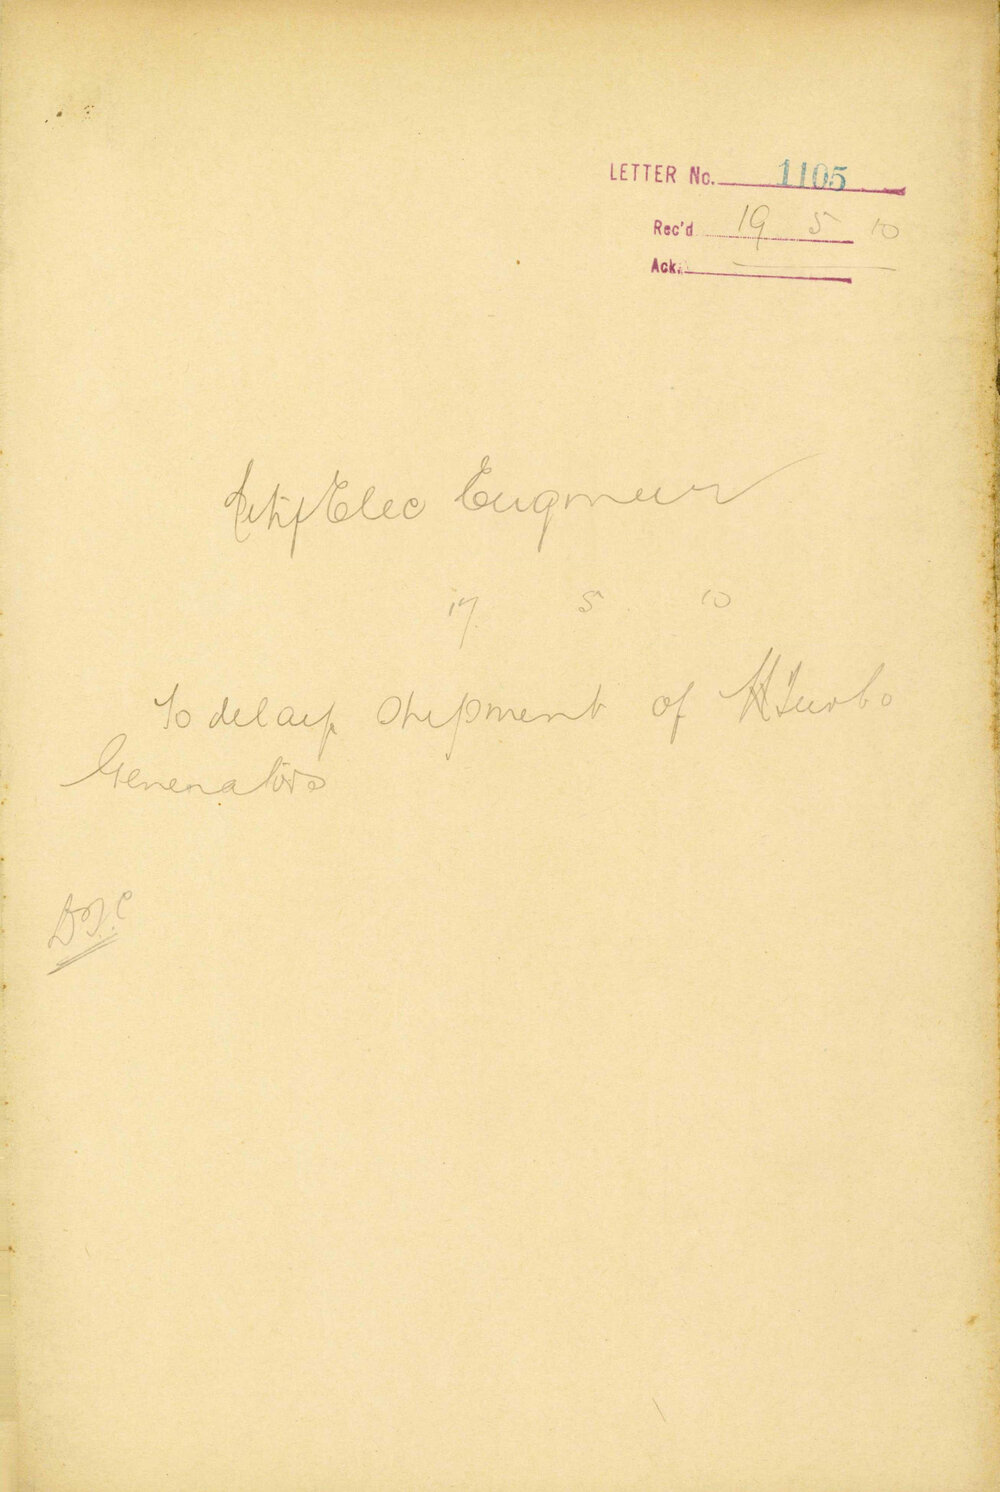 LETTER No. 1105
Rec'd 19 5 10
Ack.
Elec Engineer
17 5 10
To delay shipment of Turbo
Generators